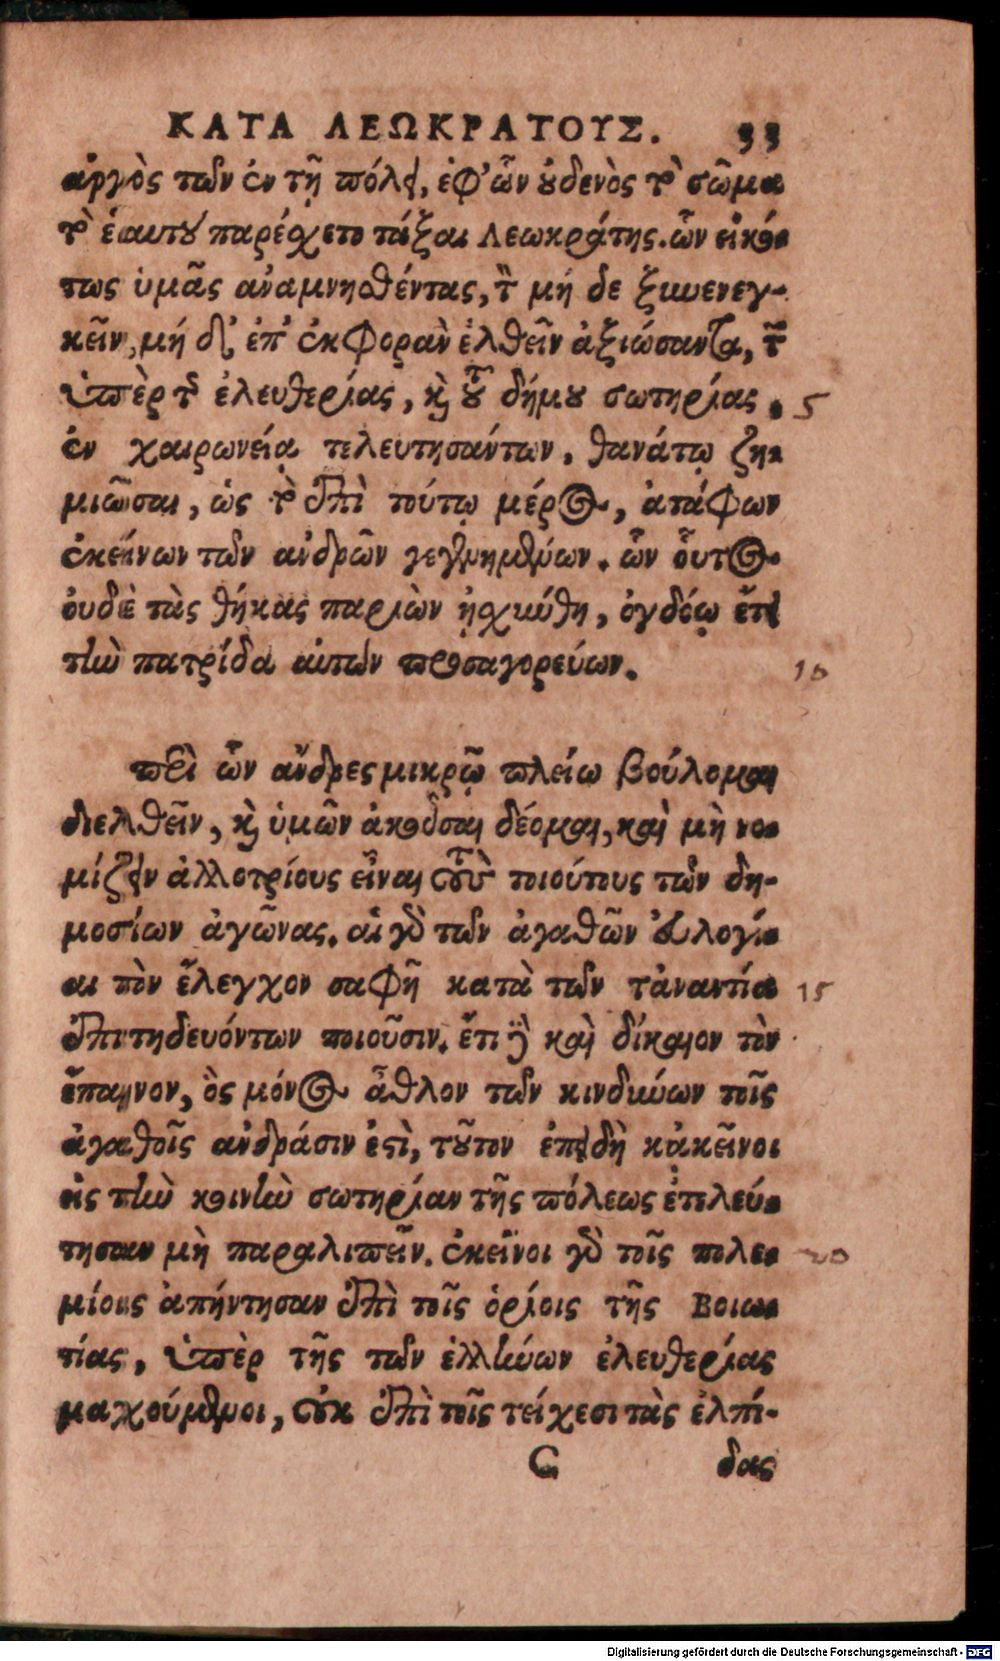 ΚΑΤΑ ΛΕΩΚΡΑΤΟΥΣ. 33
ἀργὸς τῶν ἐν τῇ πόλει, ἐφ’ ὧν οὐδενὸς τὸ σῶμα
τὸ ἑαυτοῦ παρέχετο τάξαι Λεωκράτης. ὧν εἰκό-
τως ὑμᾶς ἀναμνησθέντας, τὸ μή δε ξυνενεγ-
κεῖν, μή δ’ ἐπ’ ἐκφορὰν ἐλθεῖν ἀξιώσαντα, τῶν
ὑπὲρ τῆς ἐλευθερίας, καὶ τοῦ δήμου σωτηρίας 5
ἐν χαιρωνείᾳ τελευτησάντων, θανάτῳ ζη-
μιῶσαι, ὡς τὸ ἐπὶ τούτῳ μέρος, ἀτάφων
ἐκείνων τῶν ἀνδρῶν γεγενημένων. ὧν οὗτος
οὐδὲ τὰς θήκας παριὼν ᾐσχύνθη, ὀγδόῳ ἔτει
τὴν πατρίδα αὐτῶν προσαγορεύων. 10
περὶ ὧν ἄνδρες μικρῷ πλείω βούλομαι
διελθεῖν, καὶ ὑμῶν ἀκοῦσαι δέομαι, καὶ μὴ νο-
μίζειν ἀλλοτρίους εἶναι τοὺς τοιούτους τῶν δη-
μοσίων ἀγῶνας. αἱ γὰρ τῶν ἀγαθῶν εὐλογί-
αι τὸν ἔλεγχον σαφῆ κατὰ τῶν τἀναντία 15
ἐπιτηδευόντων ποιοῦσιν. ἔτι δὲ καὶ δίκαιον τὸν
ἔπαινον, ὃς μόνος ἆθλον τῶν κινδύνων τοῖς
ἀγαθοῖς ἀνδράσιν ἐστὶ, τοῦτον ἐπειδὴ κἀκεῖνοι
εἰς τὴν κοινὴν σωτηρίαν τῆς πόλεως ἐτελεύ-
τησαν μὴ παραλιπεῖν. ἐκεῖνοι γὰρ τοῖς πολε- 20
μίοις ἀπήντησαν ἐπὶ τοῖς ὁρίοις τῆς Βοιω-
τίας, ὑπὲρ τῆς τῶν ἑλλήνων ἐλευθερίας
μαχούμενοι, οὐκ ἐπὶ τοῖς τείχεσι τὰς ἐλπί-
C δας
Digitalisierung gefördert durch die Deutsche Forschungsgemeinschaft - DFG